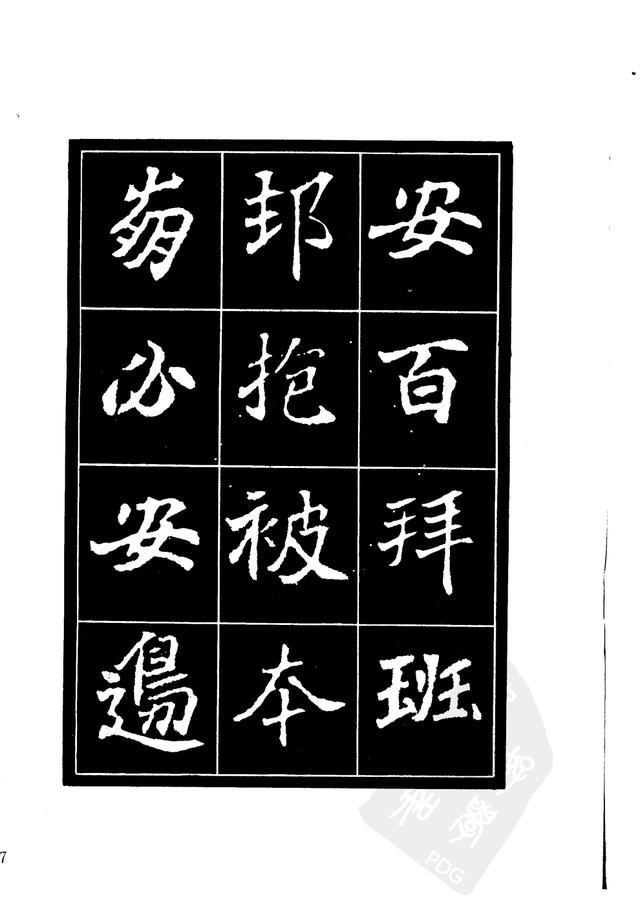 安百拜班
邦抱被本
崩必安邊
7
PDG